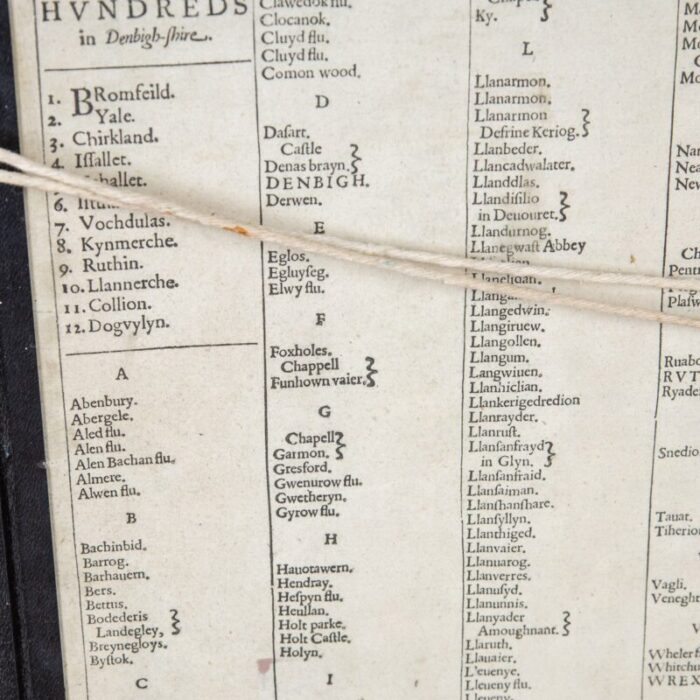 HVNDREDS
in Denbigh-ſhire.
1. BRomfeild.
2. Yale.
3. Chirkland.
4. Iſſallet.
6.
7. Vochdulas.
8. Kynmerche.
9. Ruthin.
10. Llannerche.
11. Collion.
12. Dogvylyn.
A
Abenbury.
Abergele.
Aled flu.
Alen flu.
Alen Bachan flu.
Almere.
Alwen flu.
B
Bachinbid.
Barrog.
Barhauern.
Bers.
Bettus.
Bodederis
Landegley,
Breynegloys.
Byſtok.
C
Clawedok flu.
Clocanok.
Cluyd flu.
Cluyd flu.
Comon wood.
D
Daſart.
Caſtle
Denas brayn.
DENBIGH.
Derwen.
E
Eglos.
Egluyſeg.
Elwy flu.
F
Foxholes.
Chappell
Funhown vaier.
G
Chapell
Garmon.
Gresford.
Gwenurow flu.
Gwetheryn.
Gyrow flu.
H
Hauotawern.
Hendray.
Heſpyn flu.
Heullan.
Holt parke.
Holt Caſtle.
Holyn.
I
Ky.
L
Llanarmon.
Llanarmon.
Llanarmon
Defrine Keriog.
Llanbeder.
Llancadwalater.
Llanddlas.
Llandiſilio
in Deuouret.
Llandurnog.
Llanegwaſt Abbey
Llanelidan.
Llangedwin.
Llangiruew.
Llangollen.
Llangum.
Langwiuen.
Llanhiclian.
Llankerigedredion
Llanrayder.
Llanruſt.
Llanſanfrayd
in Glyn.
Llanſanfraid.
Llanſaiman.
Llanſhanſhare.
Llanſyllyn.
Llanthiged.
Llanvaier.
Llanuarog.
Llanverres.
Llanuſyd.
Llanunnis.
Llanyader
Amoughnant.
Llaruth.
Llauaier.
L'euenye.
Lleueny flu.
Plaſw
Ruabo
RVT
Ryade
Snedio
Tauat.
Tiherio
Vagli.
Veneght
Wheler f
Whitchu
WREX